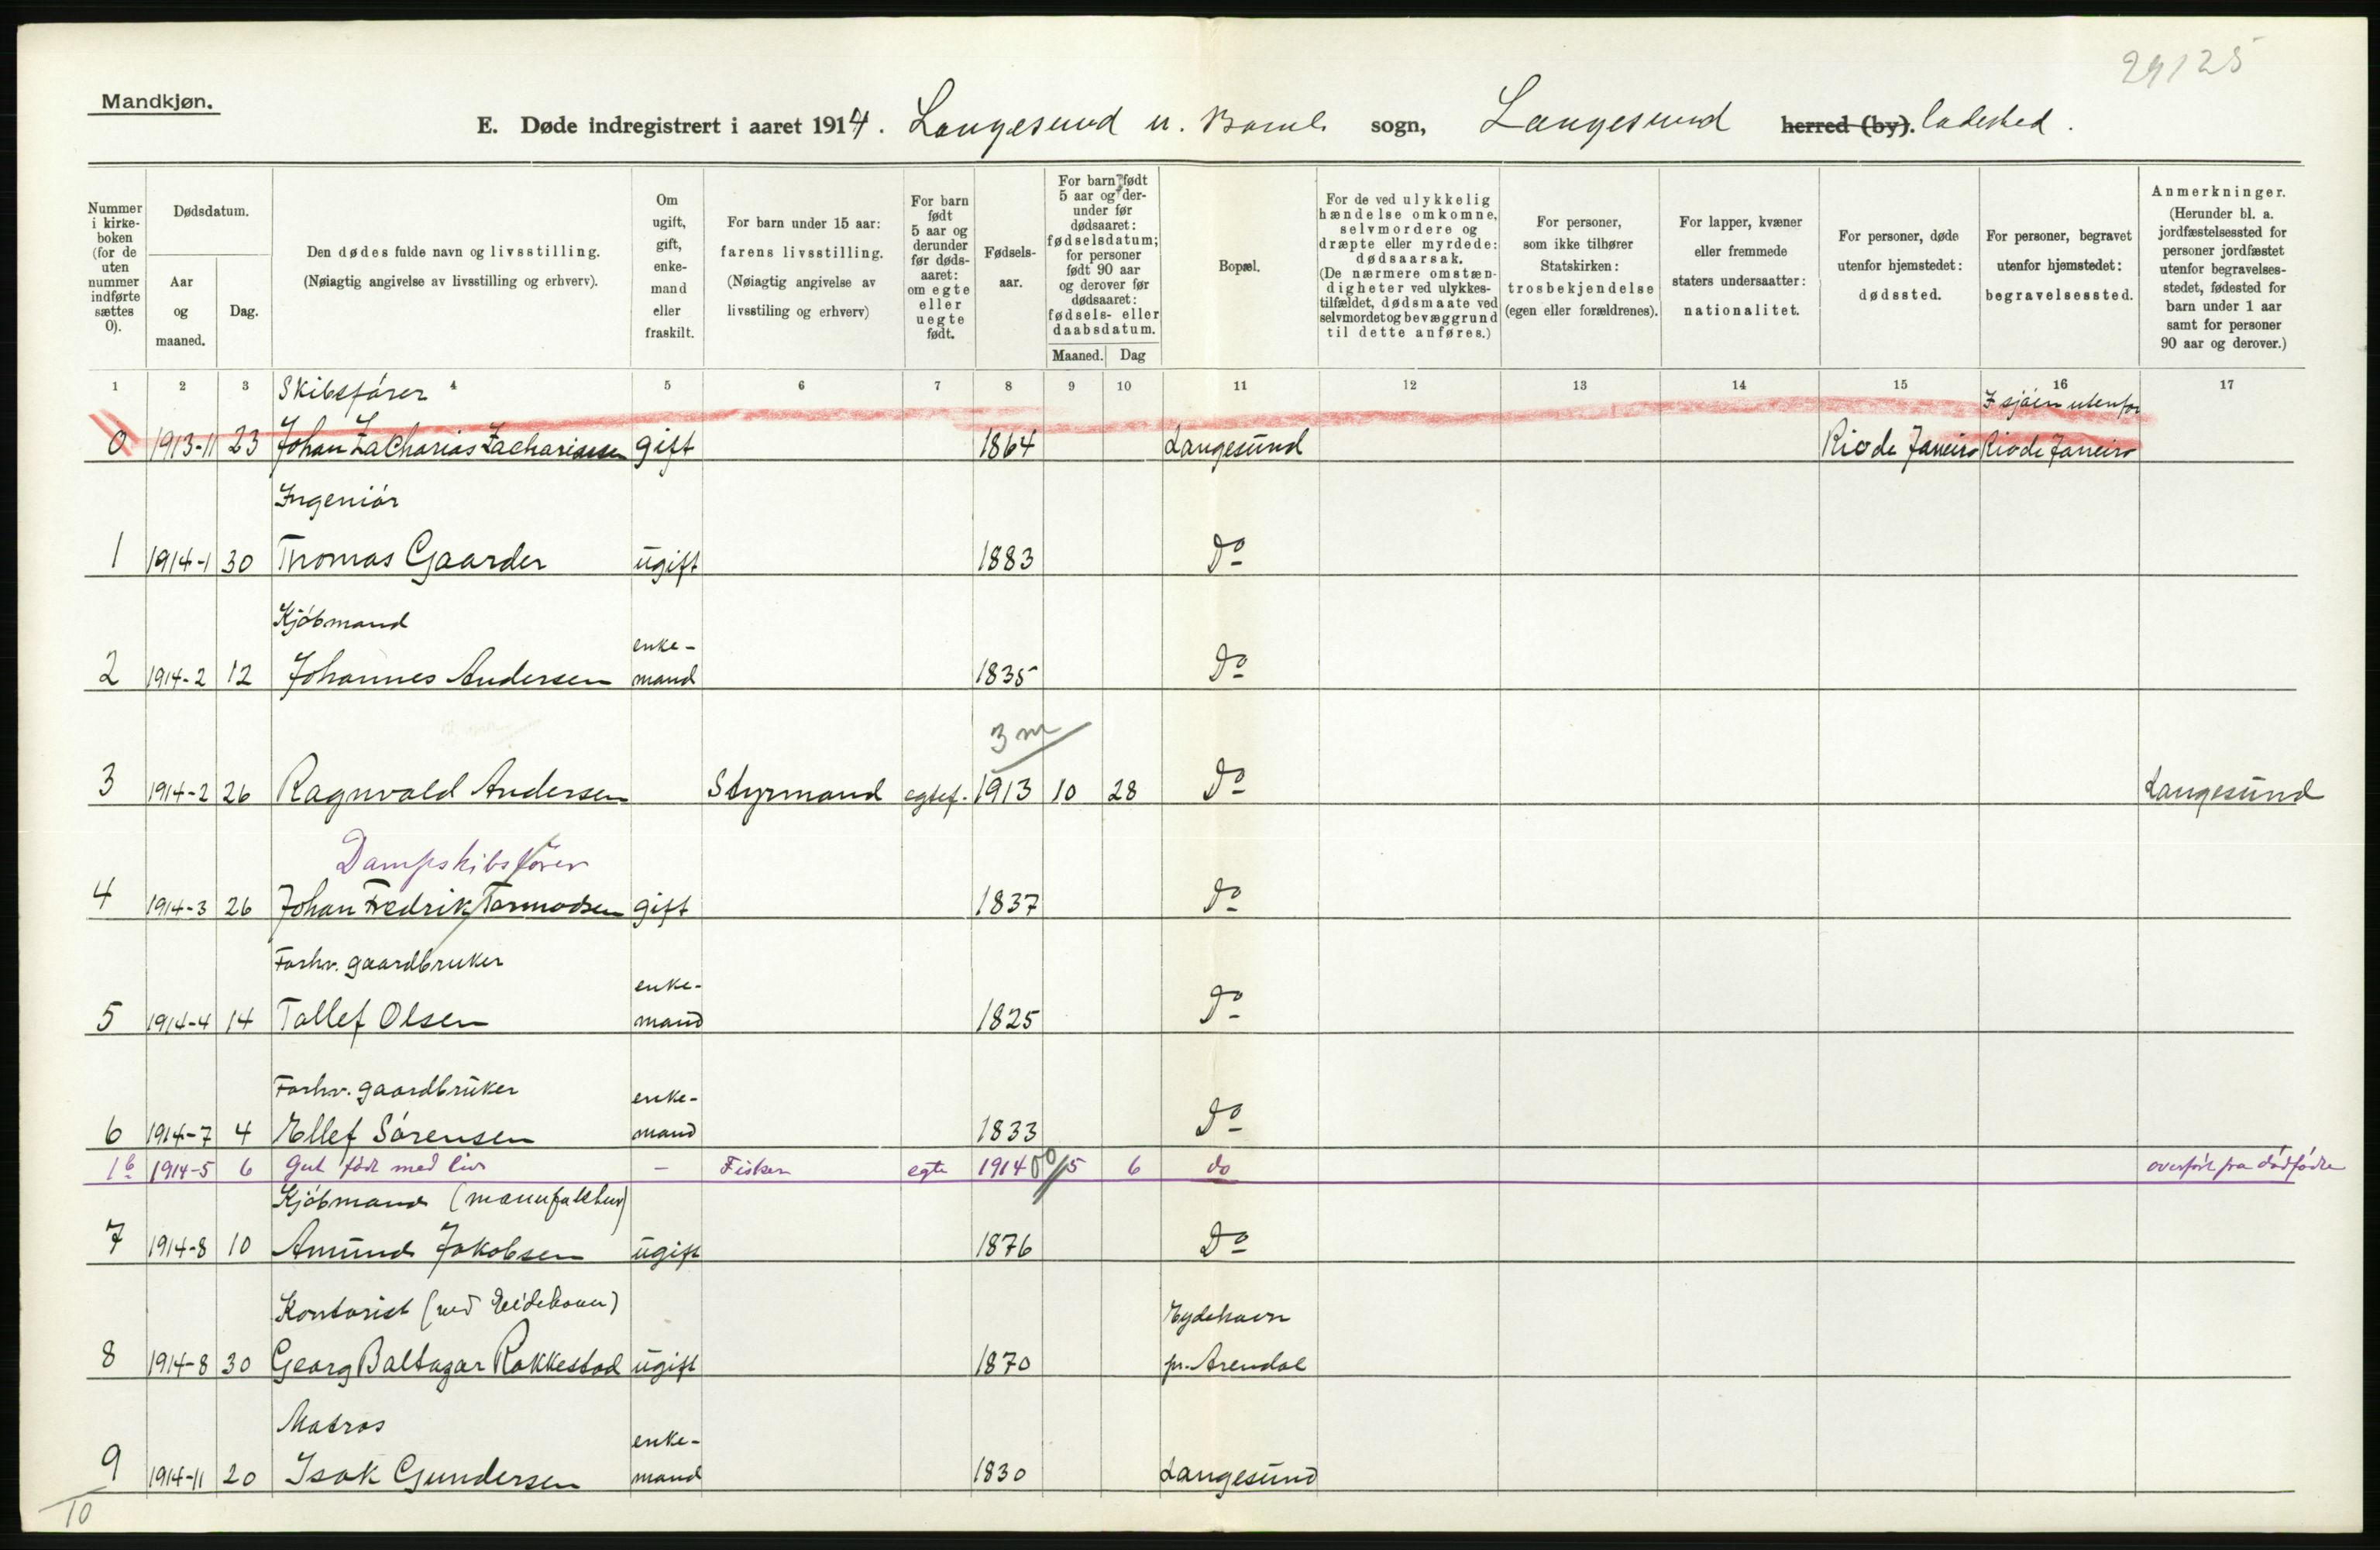 29125
Mandkjøn.
E. Døde indregistrert i aaret 1914. Langesund u. Bamle sogn, Langesund herred (by). ladested.
Nummer i kirke- boken (for de uten nummer indførte sættes 0).
Dødsdatum.
Aar og maaned.
Dag.
Den dødes fulde navn og livsstilling.
(Nøiagtig angivelse av livsstilling og erhverv).
Om ugift, gift, enke- mand eller fraskilt.
For barn under 15 aar: farens livsstilling.
(Nøiagtig angivelse av livsstiling og erhverv)
For barn født 5 aar og derunder før døds- aaret: om egte eller uegte født.
Fødsels- aar.
For barn født 5 aar og der- under før dødsaaret: fødselsdatum; for personer født 90 aar og derover før dødsaaret: fødsels- eller daabsdatum.
Maaned. Dag
Bopæl.
For de ved ulykkelig hændelse omkomne, selvmordere og dræpte eller myrdede: dødsaarsak.
(De nærmere omstæn- digheter ved ulykkes- tilfældet, dødsmaate ved selvmordet og bevæggrund til dette anføres.)
For personer, som ikke tilhører Statskirken: trosbekjendelse (egen eller forældrenes).
For lapper, kvæner eller fremmede staters undersaatter: nationalitet.
For personer, døde utenfor hjemstedet: dødssted.
For personer, begravet utenfor hjemstedet: begravelsessted.
Anmerkninger.
(Herunder bl. a. jordfæstelsessted for personer jordfæstet utenfor begravelses- stedet, fødested for barn under 1 aar samt for personer 90 aar og derover.)
1 2 3 4 5 6 7 8 9 10 11 12 13 14 15 16 17
Skibsfører I sjøen utenfor
0 1913-11 23 Johan Zacharias Zachariassen gift 1864 Langesund Rio de Janeiro Rio de Janeiro
Ingeniør
1 1914-1 30 Thomas Gaarder ugift 1883 Do
Kjøbmand enke-
2 1914-2 12 Johannes Andersen mand 1835 Do
3 m
3 1914-2 26 Ragnvald Andersen Styrmand egtef. 1913 10 28 Do Langesund
Dampskibsfører
4 1914-3 26 Johan Fredrik Tormodsen gift 1837 Do
Forhv. gaardbruker enke-
5 1914-4 14 Tallef Olsen mand 1825 Do
Forhv. gaardbruker enke-
6 1914-7 4 Ellef Sørensen mand 1833 Do
1b 1914-5 6 Gut født med liv - Fisker egte 1914 5 6 do overført fra dødfødte
Kjøbmand (manufaktur)
7 1914-8 10 Amund Jakobsen ugift 1876 Do
Kontorist (ved Eidehavn) Eydehavn
8 1914-8 30 Georg Baltazar Rakkestad ugift 1870 pr. Arendal
Matros enke-
9 1914-11 20 Isak Gundersen mand 1830 Langesund
10